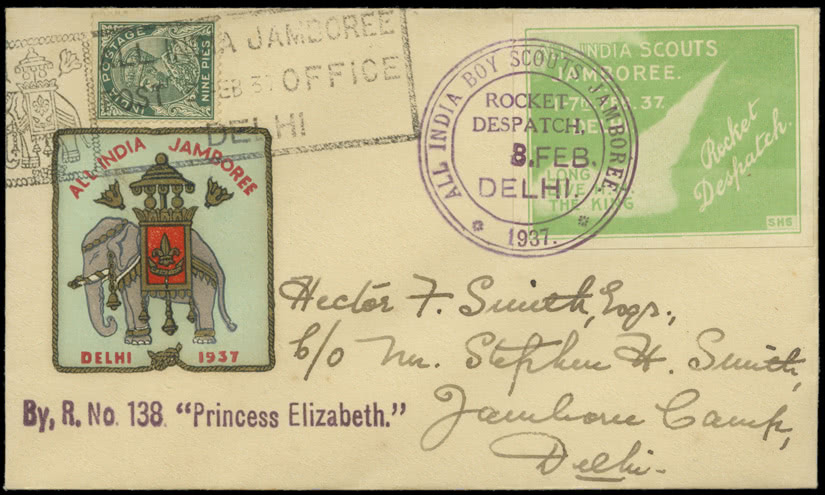 INDIA POSTAGE
NINE PIES
ALL INDIA JAMBOREE
POST OFFICE
FEB 37
DELHI
ALL INDIA JAMBOREE
DELHI 1937
By, R. No. 138. "Princess Elizabeth."
ALL INDIA BOY SCOUTS JAMBOREE
ROCKET
DESPATCH,
8. FEB.
DELHI.
* 1937. *
ALL INDIA SCOUTS
JAMBOREE.
FEB. 37.
DELHI
Rocket
Despatch.
LONG
LIVE
THE KING
SHS
Hector F. Smith, Esqr.,
c/o Mr. Stephen H. Smith,
Jamboree Camp,
Delhi.